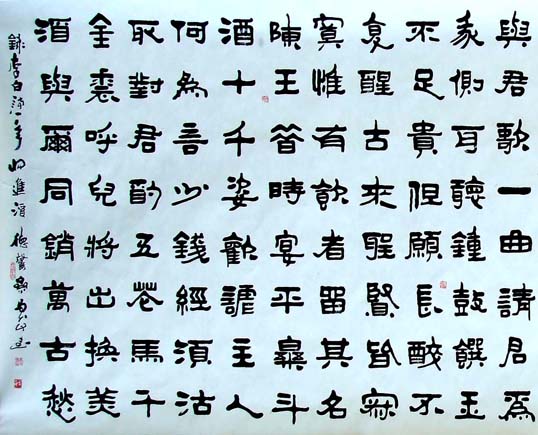 與君歌一曲請君爲
我側耳聽鍾鼓饌玉
不足貴但願長醉不
复醒古來聖賢皆寂
寞惟有飲者留其名
陳王昔時宴平樂斗
酒十千姿歡謔主人
何為言少錢經須沽
取對君酌五花馬千
金裘呼兒將出換美
酒與爾同銷萬古愁
錄李白詩一首將進酒